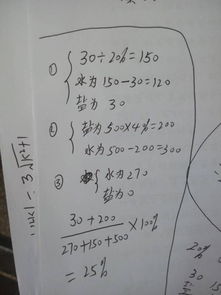 ① 30÷20%=150
水为 150-30=120
盐为 30
② 盐为 500×4%=200
水为 500-200=300
③ 水为 270
盐为 0
30+200
270+150+500
×100%
=25%
20%
30